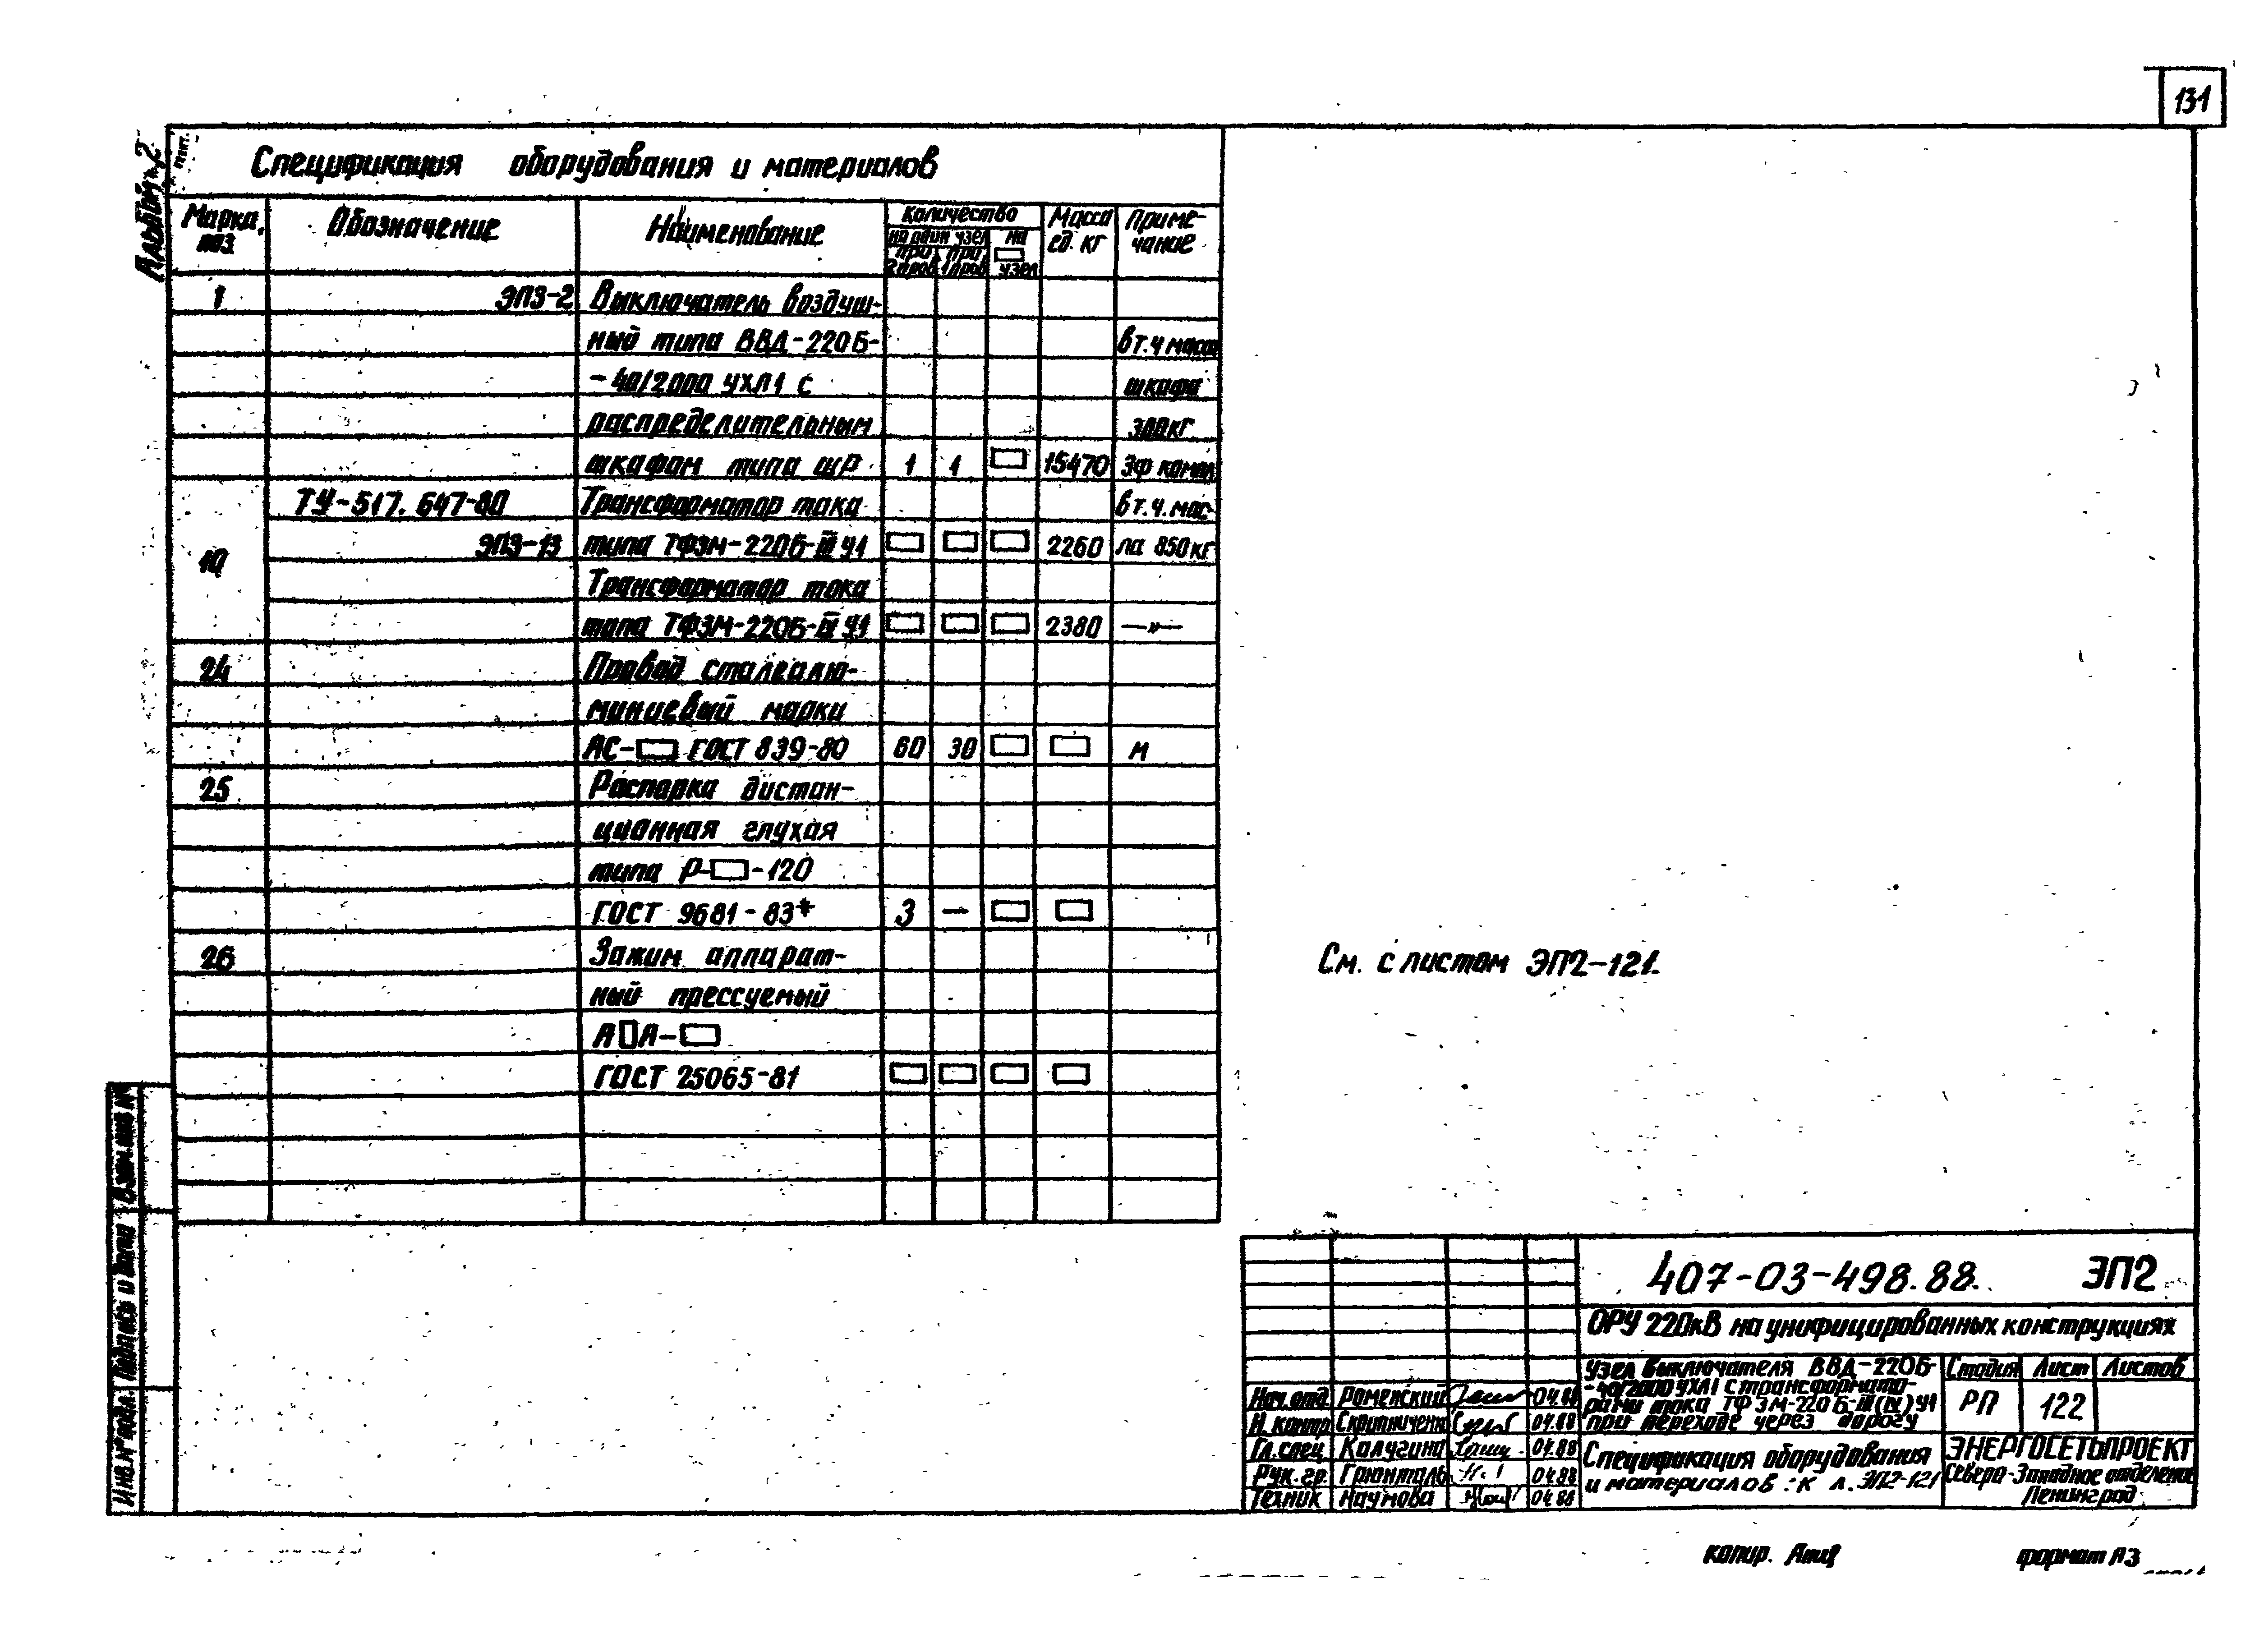 131
Альбом 2
Спецификация оборудования и материалов
Марка, поз. Обозначение Наименование Количество Масса ед. кг Примечание
на один узел На □ узел
при 2 пров. при 1 пров.
1 ЭП3-2 Выключатель воздуш-
ный типа ВВД-220Б- в т.ч масса
-40/2000 УХЛ1 с шкафа
распределительным 300кг
шкафом типа ШР 1 1 □ 15470 3ф компл.
ТУ-517. 647-80 Трансформатор тока в т.ч. мас-
10 ЭП3-13 типа ТФЗМ-220Б-III У1 □ □ □ 2260 ла 850кг
Трансформатор тока
типа ТФЗМ-220Б-IV У1 □ □ □ 2380 —»—
24 Провод сталеалю-
миниевый марки
АС-□ ГОСТ 839-80 60 30 □ □ м
25 Распорка дистан-
ционная глухая
типа Р-□-120
ГОСТ 9681-83* 3 — □ □
26 Зажим аппарат-
ный прессуемый
А□А-□
ГОСТ 25065-81 □ □ □ □
См. с листом ЭП2-121.
Взам. инв №
Подпись и дата
Инв. № подл.
407-03-498.88. ЭП2
ОРУ 220кВ на унифицированных конструкциях
Узел выключателя ВВД-220Б-
-40/2000 УХЛ1 с трансформато-
рами тока ТФЗМ-220Б-III(IV)У1
при переходе через дорогу
Стадия Лист Листов
РП 122
Нач. отд. Роменский 04.88
Н. контр. 04.88
Гл. спец. Калугина 04.88
Рук. гр. Грюнталь 04.88
Техник Наумова 04.88
Спецификация оборудования
и материалов : к л. ЭП2-121
ЭНЕРГОСЕТЬПРОЕКТ
Северо-Западное отделение
Ленинград
копир. формат А3